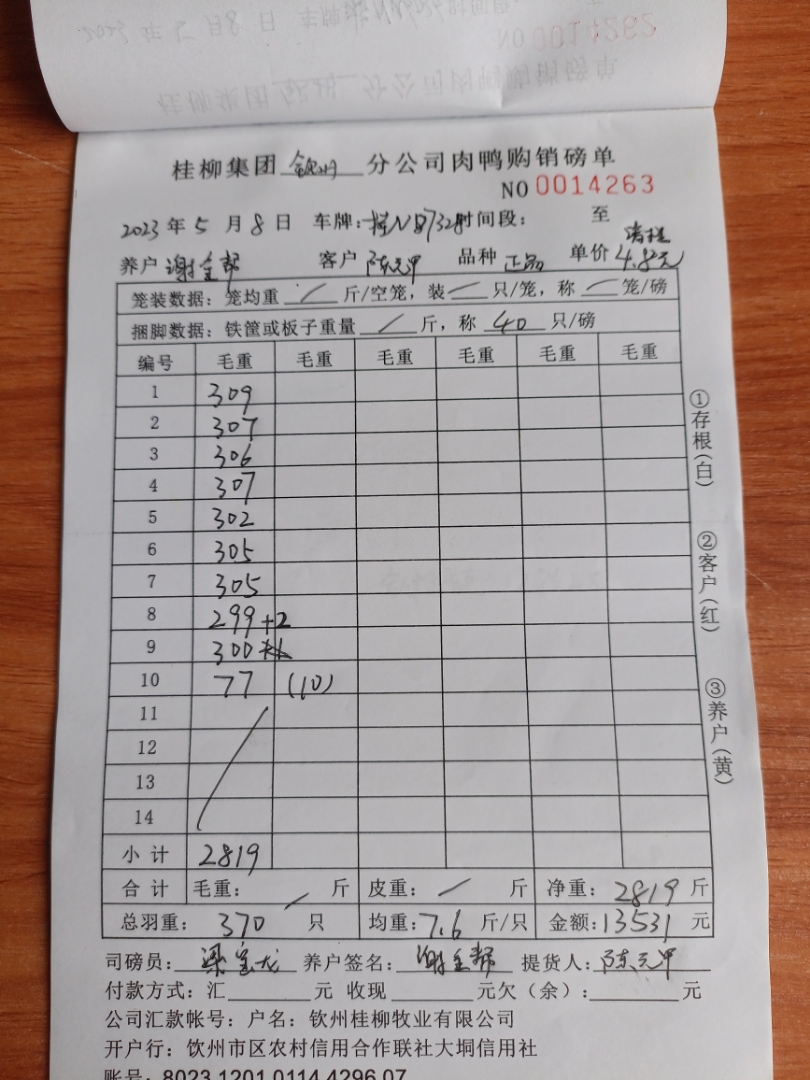 桂柳集团 钦州 分公司肉鸭购销磅单
NO 0014263
2023年5月8日 车牌:桂N 时间段: 至
养户 谢全帮 客户 陈元甲 品种 正品 单价 4.8元
笼装数据: 笼均重 / 斤/空笼, 装 / 只/笼, 称 / 笼/磅
捆脚数据: 铁筐或板子重量 / 斤, 称 40 只/磅
编号 毛重 毛重 毛重 毛重 毛重 毛重
1 309
2 307
3 306
4 307
5 302
6 305
7 305
8 299+2
9 300
10 77 (10)
11
12
13
14
小计 2819
合计 毛重: / 斤 皮重: / 斤 净重: 2819 斤
总羽重: 370 只 均重: 7.6 斤/只 金额: 13531 元
司磅员: 梁宝龙 养户签名: 谢全帮 提货人: 陈元甲
付款方式: 汇 元 收现 元欠(余): 元
公司汇款帐号: 户名: 钦州桂柳牧业有限公司
开户行: 钦州市区农村信用合作联社大垌信用社
账号: 8023 1201 0114 4296 07
①存根(白)
②客户(红)
③养户(黄)